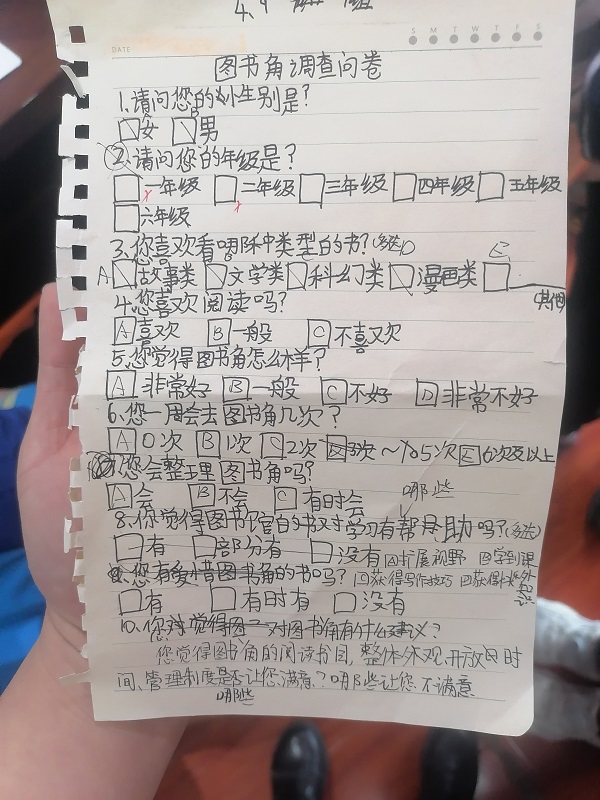 DATE
S M T W T F S
图书角调查问卷
1.请问您的性别是?
女 男
2.请问您的年级是?
一年级 二年级 三年级 四年级 五年级
六年级
3.您喜欢看哪种类型的书?(多选)
A 故事类 文学类 科幻类 漫画类 E
其他
4.您喜欢阅读吗?
A 喜欢 B 一般 C 不喜欢
5.您觉得图书角怎么样?
A 非常好 B 一般 C 不好 D 非常不好
6.您一周会去图书角几次?
A 0次 B 1次 C 2次 D 3次~5次 E 6次及以上
您会整理图书角吗?
A 会 B 不会 C 有时会
哪些
8.你觉得图书馆的书对学习有帮助吗?(多选)
有 部分有 没有 A扩展视野 B学到课外知识
您有爱惜图书角的书吗? C获得写作技巧
有 有时有 没有
10.您对图书角有什么建议?
您觉得图书角的阅读书目,整体外观,开放时
间、管理制度是否让您满意?哪些让您不满意
哪些